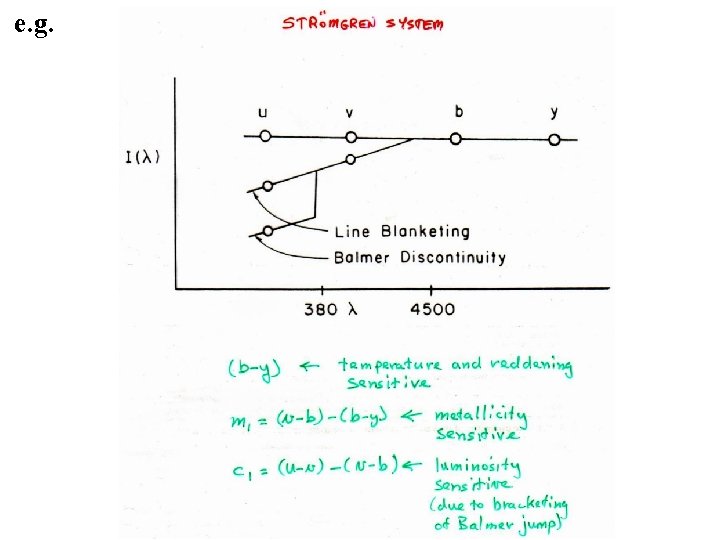 e.g.
STRÖMGREN SYSTEM
u v b y
I(λ)
Line Blanketing
Balmer Discontinuity
380 λ 4500
(b-y) ← temperature and reddening
sensitive
m₁ = (v-b)-(b-y) ← metallicity
sensitive
c₁ = (u-v)-(v-b) ← luminosity
sensitive
(due to bracketing
of Balmer jump)